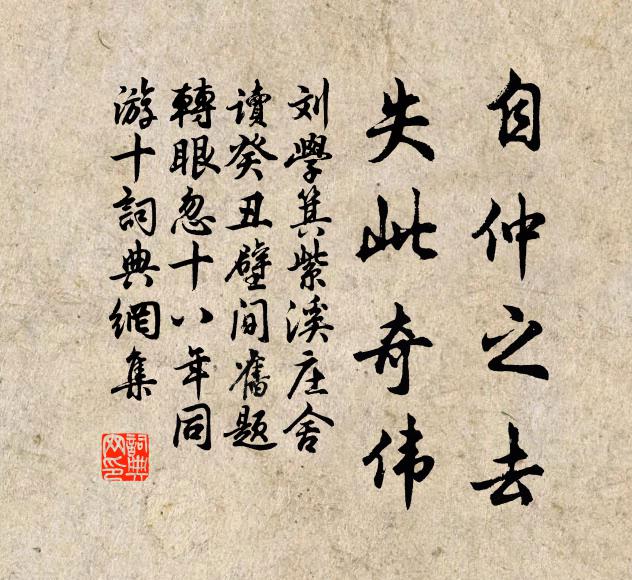 自仲之去
失此奇伟
刘学箕紫溪庄舍
读癸丑壁间旧题
转眼忽十八年同
游十词典网集
词典
网印